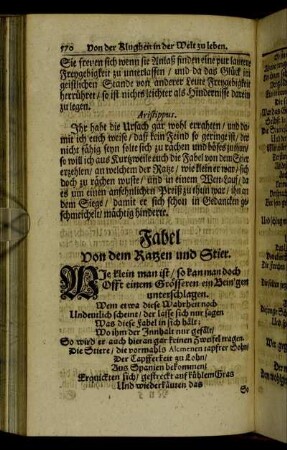 570 Von der Klugheit in der Welt zu leben.
Sie freuen sich wenn sie Anlaß finden eine pur lautere
Freygebigkeit zu unterlassen / und da das Glück im
geistlichen Stande von anderer Leute Freygebigkeit
herrühret / so ist nichts leichter als Hindernisse darein
zu legen.
Aristippus.
Ihr habt die Ursach gar wohl errahten / und da-
mit ich euch weise / daß kein Feind so gering ist / der
nicht fähig seyn solte sich zu rächen und böses zuthun /
so will ich aus Kurzweile euch die Fabel von dem Stier
erzehlen / an welchem die Ratze / wie klein er war / sich
doch zu rächen wuste / und in einem Wett-Lauf / da
es um einen ansehnlichen Preiß zu thun war / ihn an
dem Siege / damit er sich schon in Gedancken ge-
schmeichelt / mächtig hinderte.
Fabel
Von dem Ratzen und Stier.
WIe klein man ist / so kan man doch
Offt einem Grösseren ein Bein gen
unterschlagen.
Wem etwa diese Wahrheit noch
Undeutlich scheint / der lasse sich nur sagen
Was diese Fabel in sich hält /
Wo ihm der Innhalt nur gefält /
So wird er auch hieran gar keinen Zweifel tragen.
Die Stiere / die vormahls Alcmenen tapfrer Sohn /
Der Tapfferkeit zu Lohn /
Aus Spanien bekommen /
Erquickten sich / gestreckt auf kühlem Gras
Und wiederkäuten das